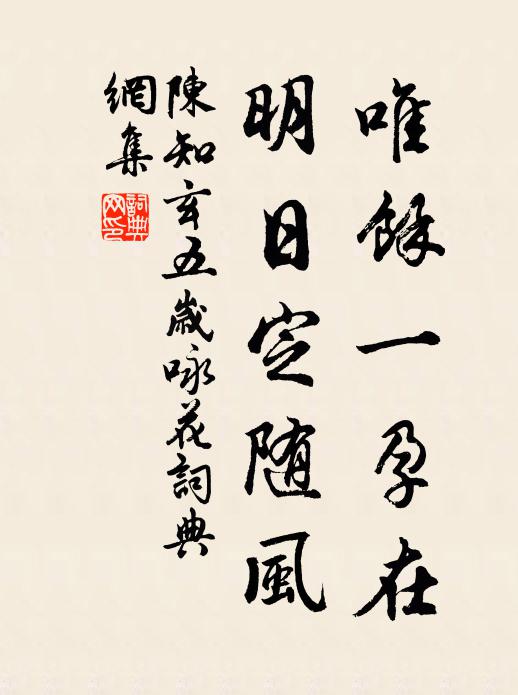 唯餘一孕在
明日定随風
陳知玄五歲咏花詞典
網集
詞典
网印